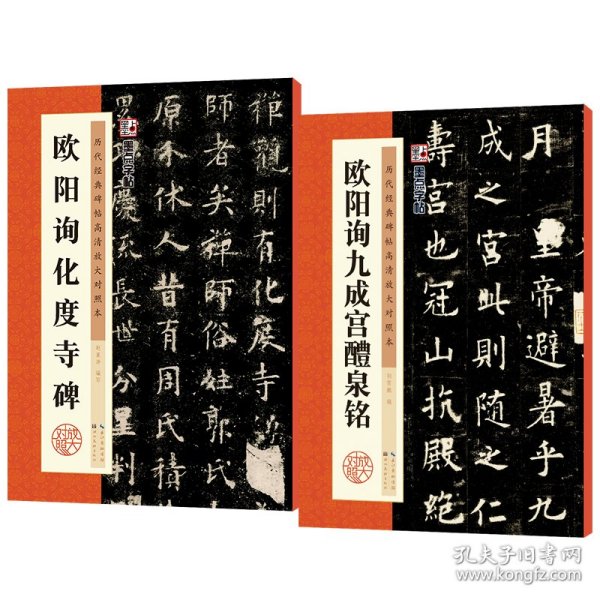 欧阳询化度寺碑
历代经典碑帖高清放大对照本
墨点字帖
放大对照
禅观则有化度寺
师者矣禅师俗姓郭氏
原介休人昔有周氏积
德长世分星判
欧阳询九成宫醴泉铭
历代经典碑帖高清放大对照本
墨点字帖
放大对照
月皇帝避暑乎九
成之宫此则随之仁
壽宮也冠山抗殿絶
孔夫子旧书网
www.kongfz.com